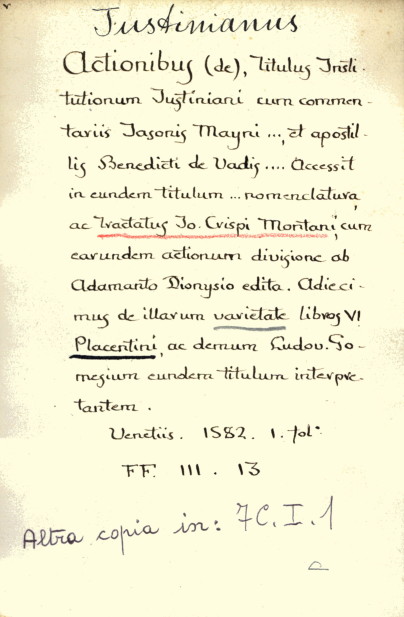 Justinianus
Actionibus (de), Titulus Insti-
tutionum Justiniani cum commen-
tariis Jasonis Mayni ..., et apostil-
lis Benedicti de Vadis .... Accessit
in eundem titulum ... nomenclatura,
ac Tractatus Jo. Crispi Montani, cum
earundem actionum divisione ab
Adamanto Dionysio edita. Adieci-
mus de illarum varietate libros VI
Placentini, ac demum Ludov. Go-
mesium eundem titulum interpre-
tantem.
Venetiis. 1582. 1. fol.°
FF. III. 13
Altra copia in: 7C.I.1